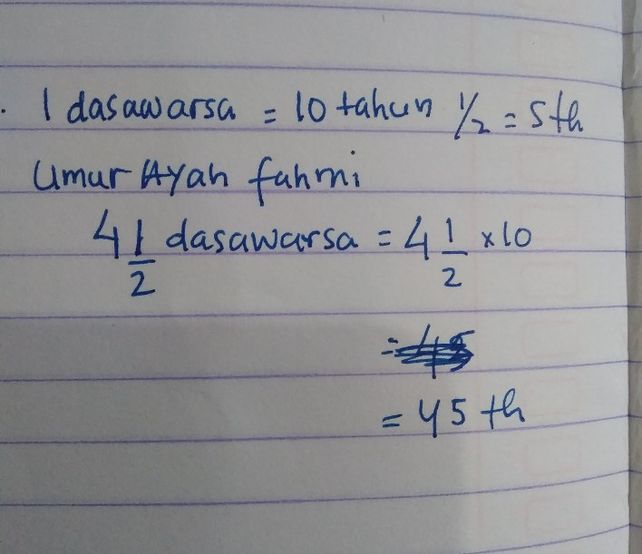 . 1 dasawarsa = 10 tahun 1/2 = 5 th
Umur Ayah fahmi
4 1/2 dasawarsa = 4 1/2 x 10
= 45 th